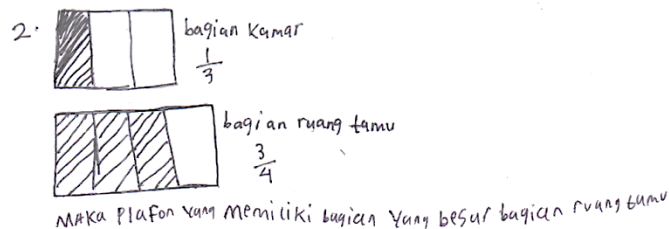 2. bagian kamar
1/3
bagian ruang tamu
3/4
MAKA Plafon yang Memiliki bagian yang besar bagian ruang tamu